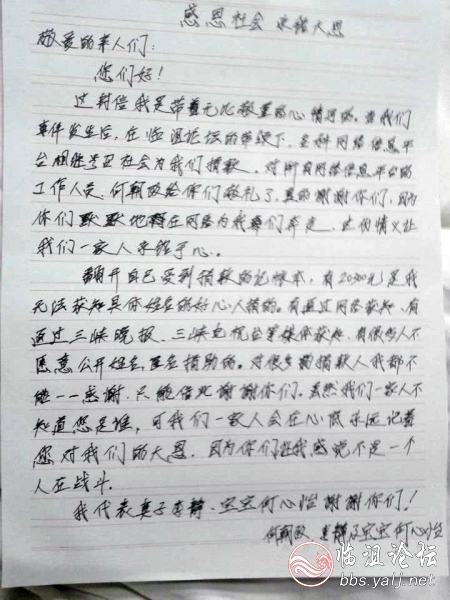 感恩社会 永铭大恩
敬爱的亲人们:
您们好!
这封信我是带着无比敬重的心情写的。当我们
事件发生后,在临沮论坛的带领下,各种网络信息平
台相继号召社会为我们捐款。对所有网络信息平台的
工作人员,何朝政给你们敬礼了,真的谢谢你们,因为
你们默默地在网络为我们奔走,这份情义让
我们一家人永铭于心。
翻开自己受到捐款的记录本,有20300元是我
无法获知具体姓名的好心人捐的。有通过网络获知、有
通过三峡晚报、三峡电视台等媒体获知,有很多人不
愿意公开姓名,匿名捐助的。对很多的捐款人我都不
能一一感谢,只能借此谢谢你们。虽然我们一家人不
知道您是谁,可我们一家人会在心底永远记着
您对我们的大恩,因为你们让我感觉不是一个
人在战斗.
我代表妻子李静、宝宝何心怡谢谢你们!
何朝政 李静及宝宝何心怡
临沮论坛
bbs.yalj.net